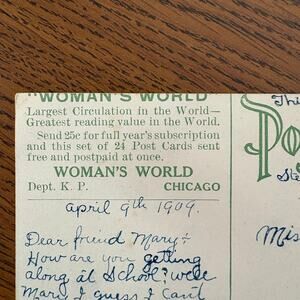 "WOMAN'S WORLD"
Largest Circulation in the World—
Greatest reading value in the World.
Send 25c for full year's subscription
and this set of 24 Post Cards sent
free and postpaid at once.
WOMAN'S WORLD
Dept. K. P. CHICAGO
april 9th 1909.
Dear friend Mary:
How are you getting
along at School? well
Mary I guess I can't
This
Po
Mis